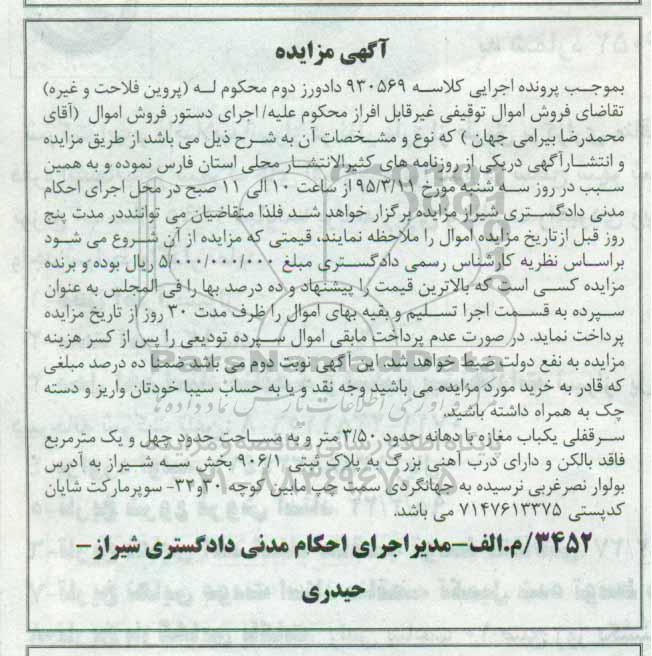 آگهی مزایده
بموجب پرونده اجرایی کلاسه ۹۳۰۵۶۹ دادورز دوم محکوم له (پروین فلاحت و غیره)
تقاضای فروش اموال توقیفی غیرقابل افراز محکوم علیه/ اجرای دستور فروش اموال (آقای
محمدرضا بیرامی جهان) که نوع و مشخصات آن به شرح ذیل می باشد از طریق مزایده
و انتشارآگهی دریکی از روزنامه های کثیرالانتشار محلی استان فارس نموده و به همین
سبب در روز سه شنبه مورخ ۹۵/۳/۱۱ از ساعت ۱۰ الی ۱۱ صبح در محل اجرای احکام
مدنی دادگستری شیراز مزایده برگزار خواهد شد فلذا متقاضیان می تواننددر مدت پنج
روز قبل ازتاریخ مزایده اموال را ملاحظه نمایند، قیمتی که مزایده از آن شروع می شود
براساس نظریه کارشناس رسمی دادگستری مبلغ ۵/۰۰۰/۰۰۰/۰۰۰ ریال بوده و برنده
مزایده کسی است که بالاترین قیمت را پیشنهاد و ده درصد بها را فی المجلس به عنوان
سپرده به قسمت اجرا تسلیم و بقیه بهای اموال را ظرف مدت ۳۰ روز از تاریخ مزایده
پرداخت نماید. در صورت عدم پرداخت مابقی اموال سپرده تودیعی را پس از کسر هزینه
مزایده به نفع دولت ضبط خواهد شد. این آگهی نوبت دوم می باشد ضمنا ده درصد مبلغی
که قادر به خرید مورد مزایده می باشید وجه نقد و یا به حساب سیبا خودتان واریز و دسته
چک به همراه داشته باشید.
سرقفلی یکباب مغازه با دهانه حدود ۳/۵۰ متر و به مساحت حدود چهل و یک مترمربع
فاقد بالکن و دارای درب آهنی بزرگ به پلاک ثبتی ۹۰۶/۱ بخش سه شیراز به آدرس
بولوار نصرغربی نرسیده به جهانگردی سمت چپ مابین کوچه ۳۰و۳۲- سوپرمارکت شایان
کدپستی ۷۱۴۷۶۱۳۳۷۵ می باشد.
۳۴۵۲/م.الف-مدیراجرای احکام مدنی دادگستری شیراز-
حیدری
ParsNamadData